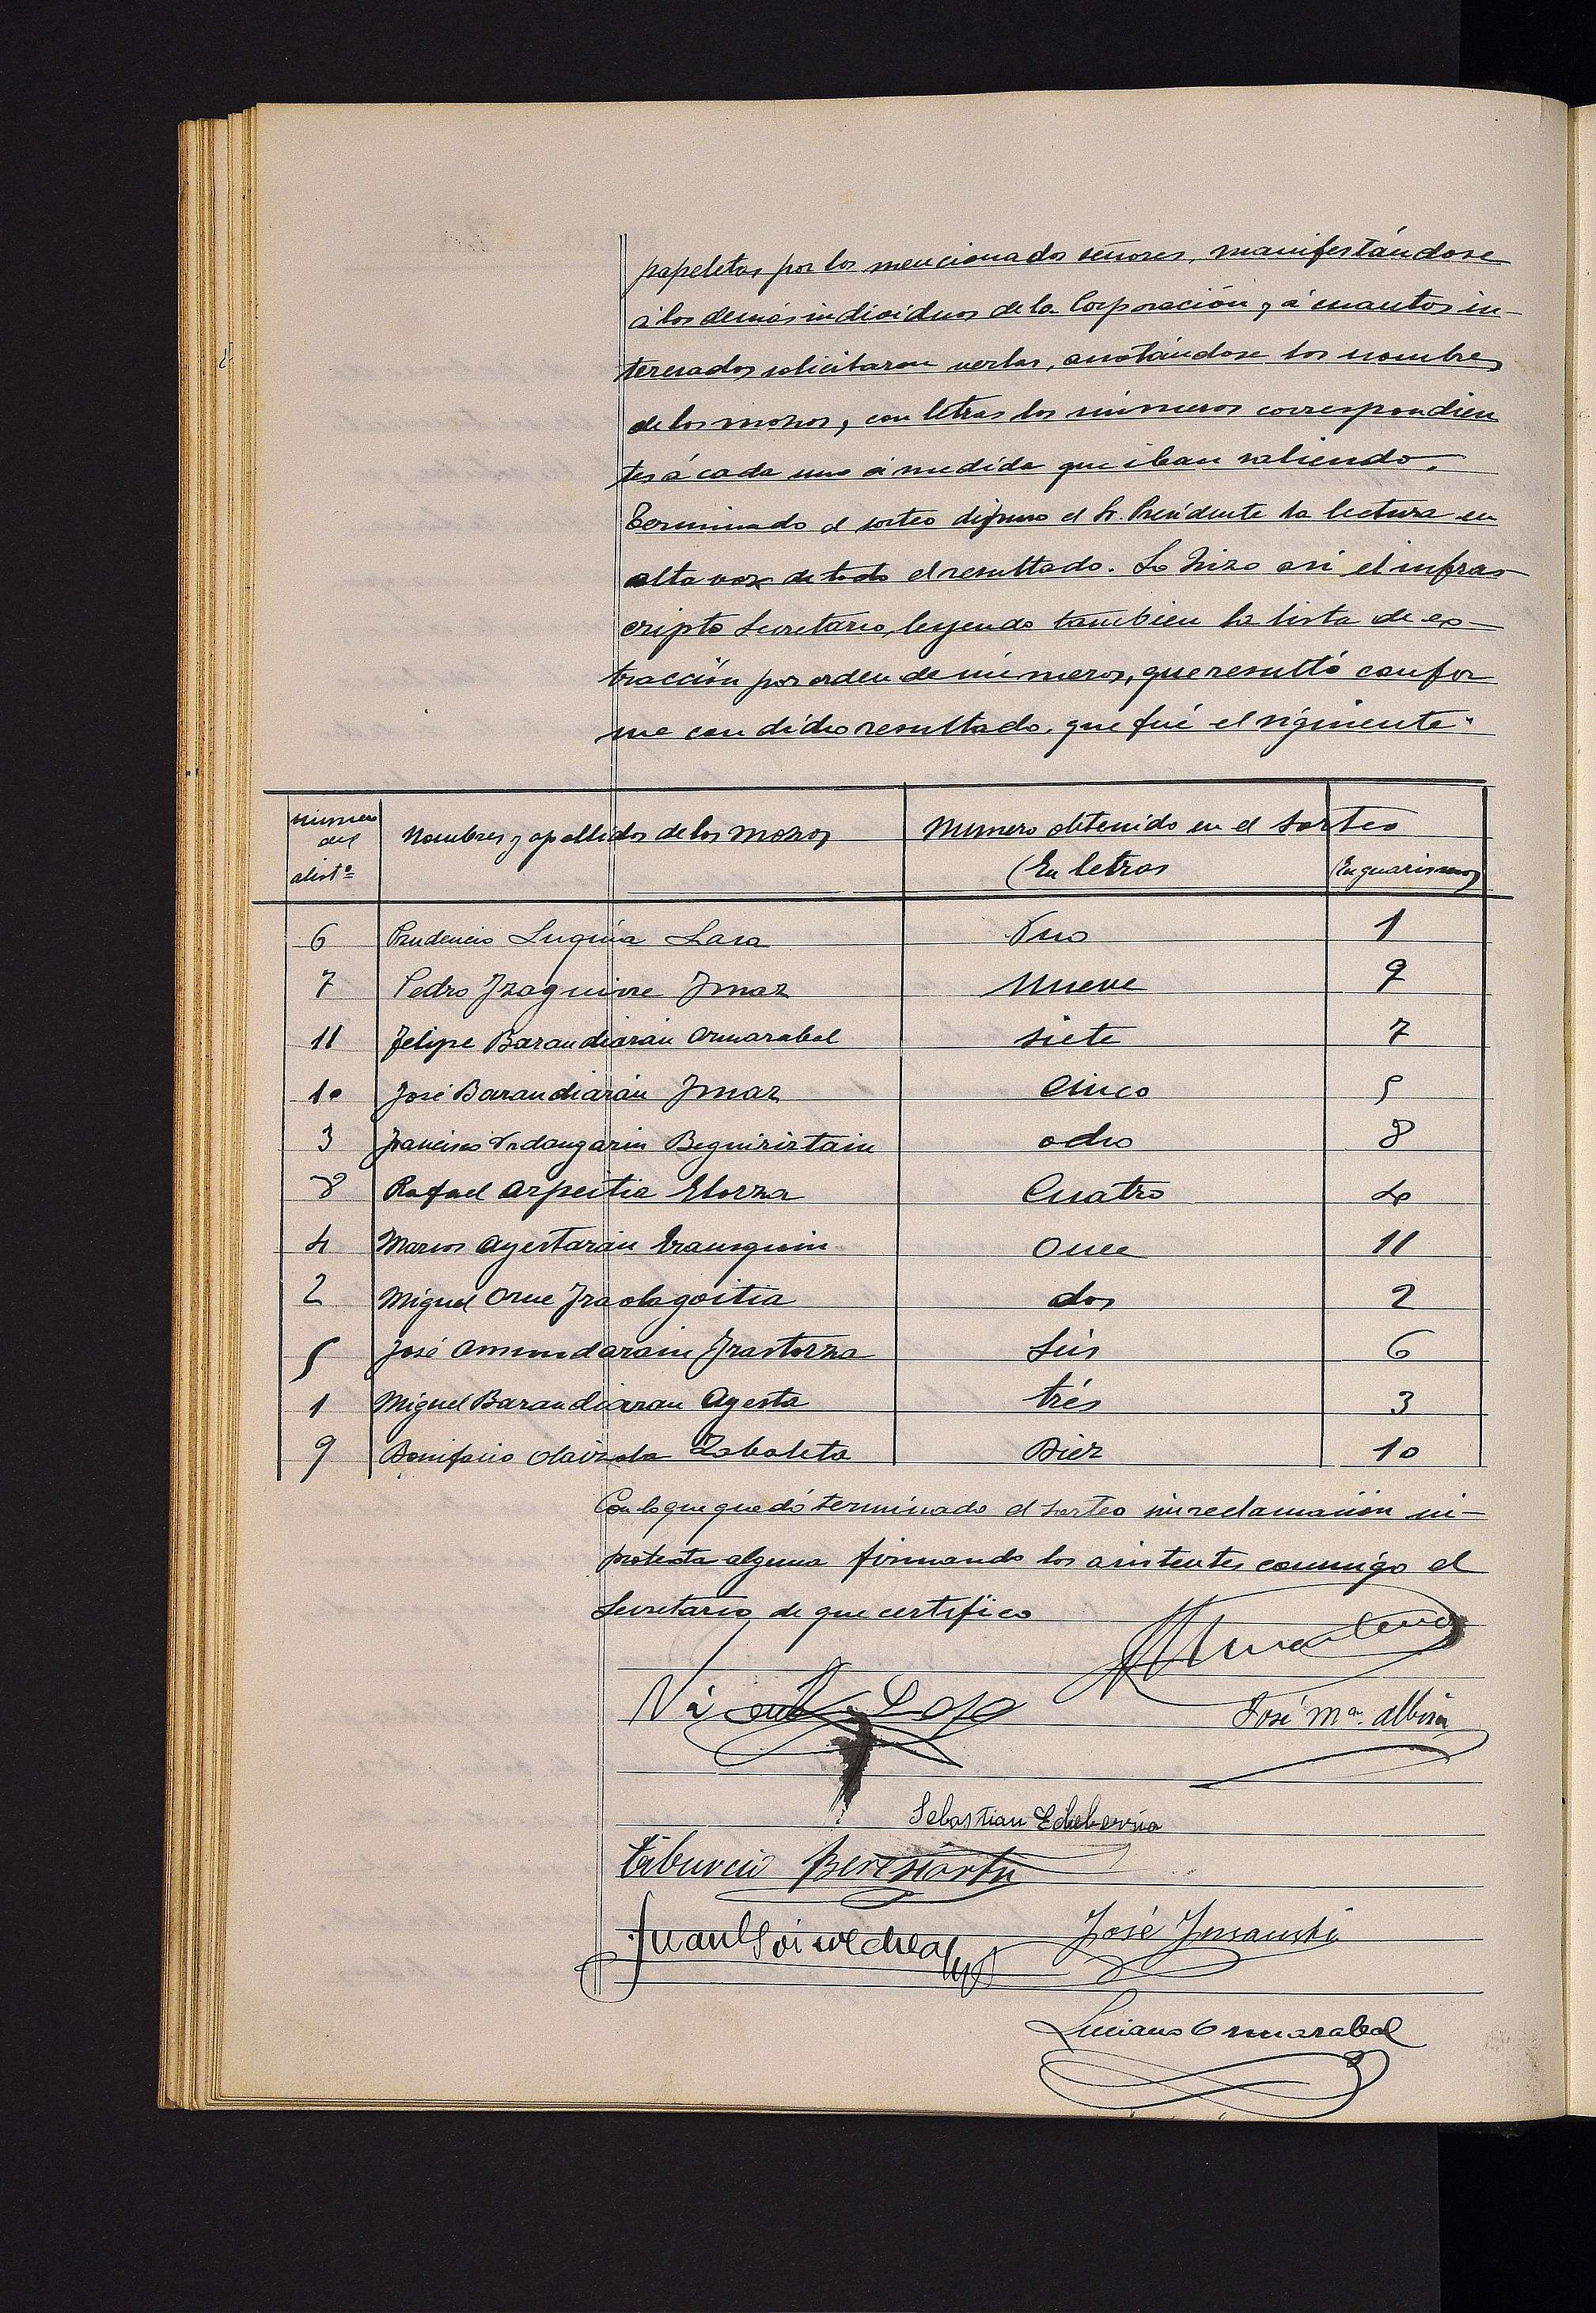 papeletas, por los mencionados señores, manifestándose
á los demás individuos de la Corporación y á cuantos in-
teresados solicitaron verlas, anotándose los nombres
de los mozos, con letras los números correspondien
tes á cada uno á medida que iban saliendo.
Terminado el sorteo dispuso el Sr. Presidente la lectura en
alta voz de todo el resultado. Lo hizo asi el infras
cripto Secretario, leyendo tambien la lista de ex-
tracción por orden de números, que resultó confor
me con dicho resultado, que fué el siguiente"
número del alistº Nombres y apellidos de los mozos Número obtenido en el sorteo
(En letras (En guarismos)
6 Prudencio Luquia Lasa Uno 1
7 Pedro Yzaguirre Ymaz Nueve 9
11 Felipe Barandiarán Ormazabal siete 7
10 José Barandiarán Ymaz Cinco 5
3 Francisco Urdangarin Beguiristain ocho 8
8 Rafael Azpeitia Elorza Cuatro 4
4 Marcos Ayestarán Once 11
2 Miguel Orue Yraolagoitia dos 2
5 José Amundarain Yrastorza Séis 6
1 Miguel Barandiaran Ayesta trés 3
9 Bonifacio Olaizola Zabaleta Diez 10
Con lo que quedó terminado el sorteo sin reclamación ni-
protesta alguna firmando los asistentes conmigo el
Secretario, de que certifico
Vicente
José Mª. Albisu
Sebastian Echeberria
Tiburcio Berasiartu
Juan Goicoechea José Ynsausti
Luciano Ormazabal